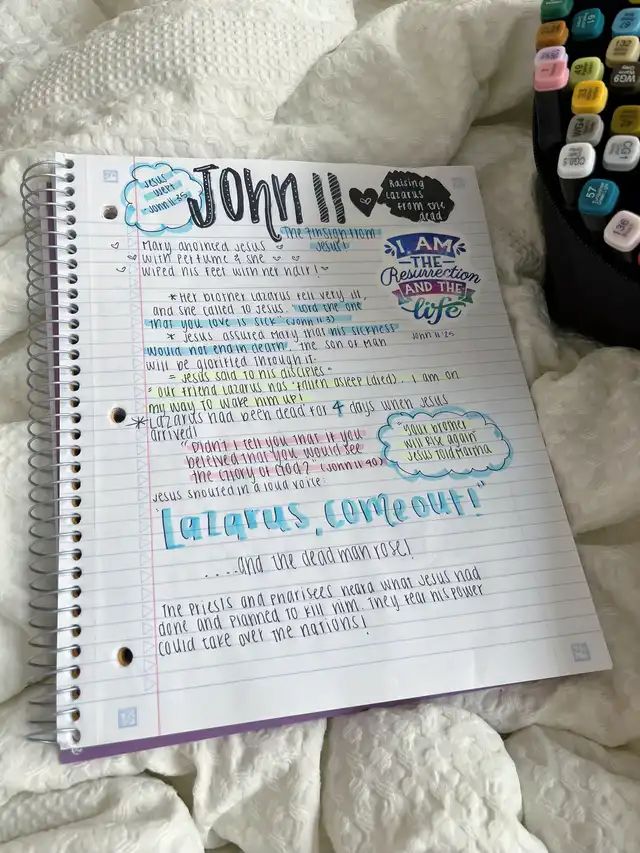 Jesus
wept
John 11:35
John 11
Raising
Lazarus
from the
dead
The 7th sign from
Jesus!
Mary anointed Jesus
with perfume & she
wiped his feet with her hair!
I AM
THE
Resurrection
AND THE
life
John 11:25
*Her brother Lazarus fell very ill,
and she called to Jesus. "Lord the one
that you love is sick" (John 11:3)
* Jesus assured Mary that his sickness
would not end in death. The son of man
will be glorified through it.
- Jesus said to his disciples-
"our friend Lazarus has fallen asleep (died). I am on
my way to wake him up!
*Lazarus had been dead for 4 days when Jesus
arrived!
"Didn't I tell you that if you
believed that you would see
the glory of God?" (John 11:40)
"Your brother
will rise again"
Jesus told Martha
Jesus shouted in a loud voice
"Lazarus, come out!"
....and the dead man rose!
The priests and pharisees heard what Jesus had
done and planned to kill him. They fear his power
could take over the nations!
19
132
WG9
49
WG4
CG0.5
57
136